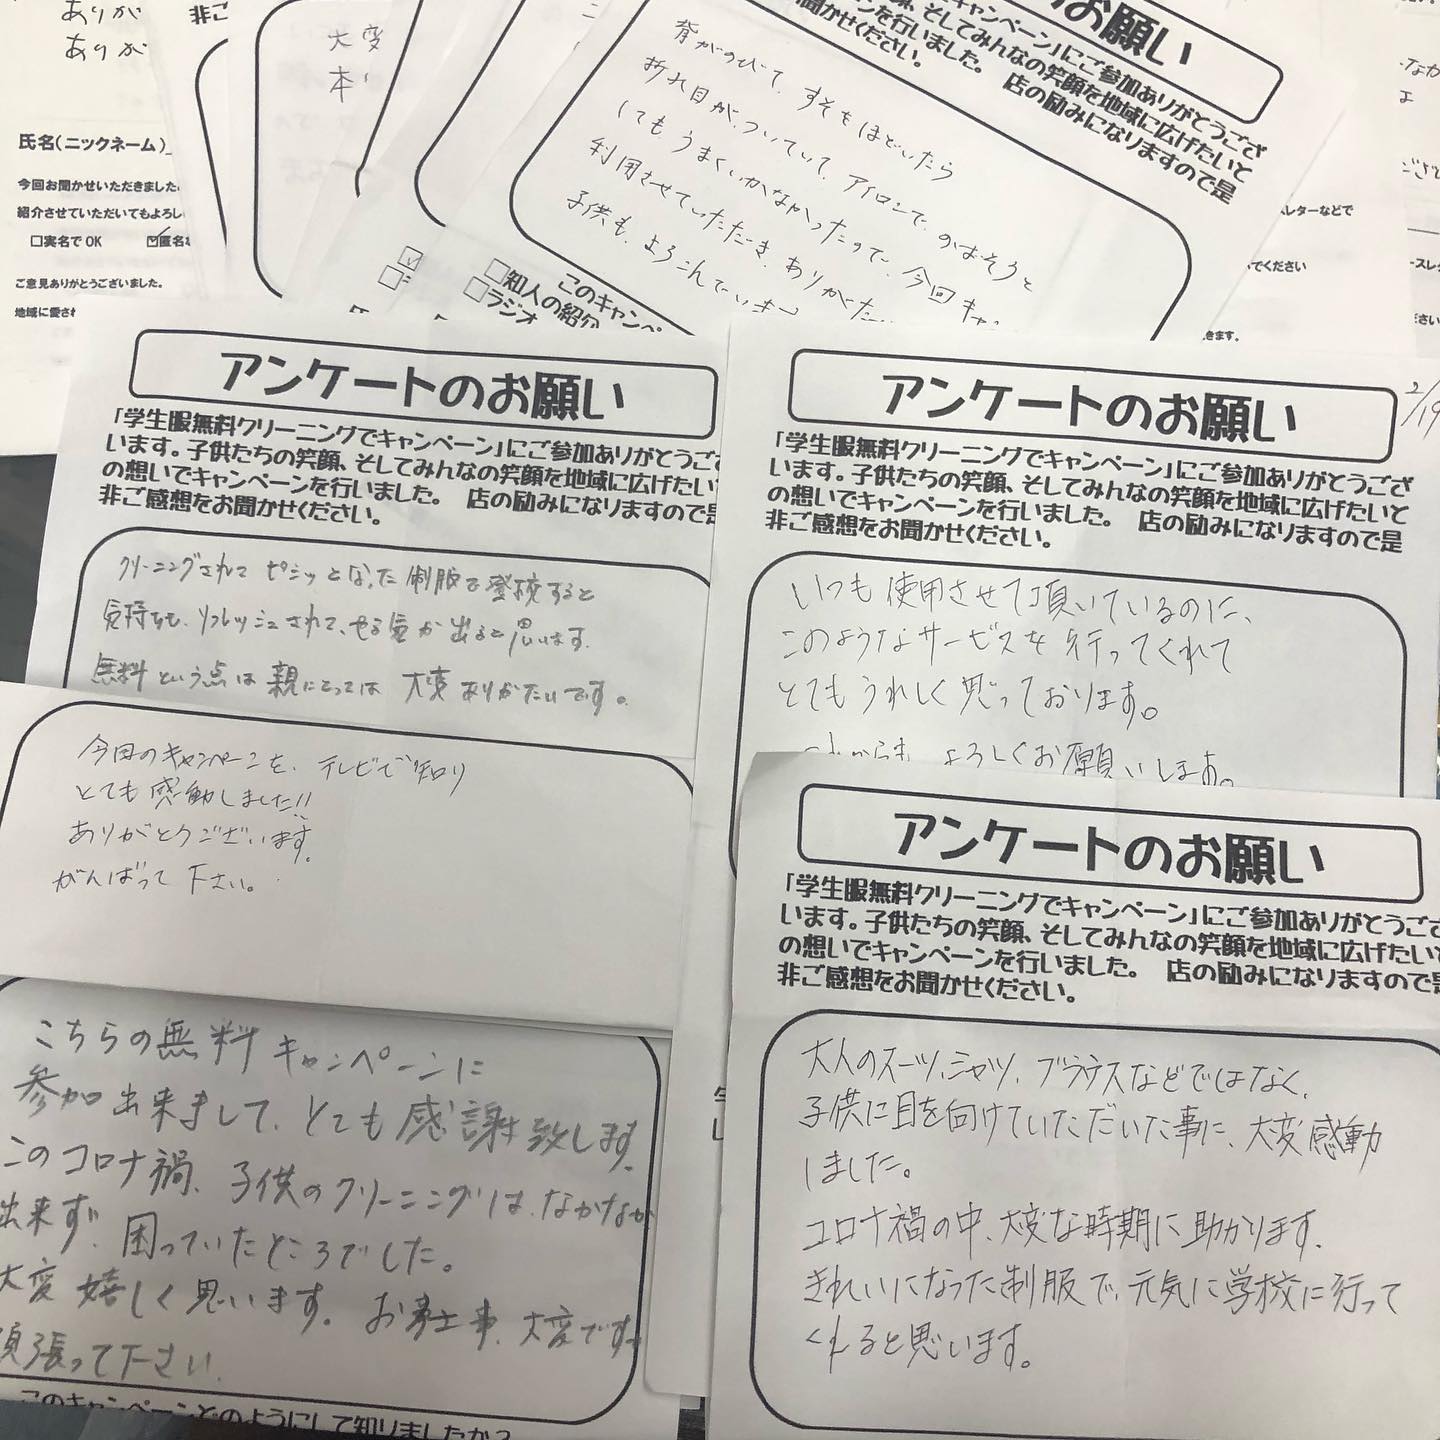 ありが
ありが
非ご
大変
本
氏名(ニックネーム)
今回お聞かせいただきました
紹介させていただいてもよろし
□実名でOK
☑匿名
ご意見ありがとうございました。
地域に愛され
のお願い
キャンペーン」にご参加ありがとうござ
、そしてみんなの笑顔を地域に広げたいと
を行いました。 店の励みになりますので是
聞かせください。
背がのびて、すそをほどいたら
折れ目が、ついていて、アイロンで、のばそうと
しても、うまくいかなかったので、今回キャ
利用させていただき、ありがた
子供も、よろこんでいます
このキャンペ
□知人の紹介
□ラジオ
レターなどで
でください
きます。
アンケートのお願い
「学生服無料クリーニングでキャンペーン」にご参加ありがとうござ
います。子供たちの笑顔、そしてみんなの笑顔を地域に広げたい
の想いでキャンペーンを行いました。 店の励みになりますので是
非ご感想をお聞かせください。
クリーニングされて ピシッとなった 制服で登校すると
気持ちも、リフレッシュされて、やる気が出ると思います。
無料という点は親にとっては 大変ありがたいです。
今回のキャンペーンを、テレビで知り
とても感動しました!!
ありがとうございます。
がんばって下さい。
こちらの無料キャンペーンに
参加出来まして、とても感謝致します。
このコロナ禍、子供のクリーニングは、なかなか
出来ず、困っていたところでした。
大変嬉しく思います。お仕事、大変です
頑張って下さい
このキャンペーンどのようにして知りましたか?
アンケートのお願い
2/19
「学生服無料クリーニングでキャンペーン」にご参加ありがとうござ
います。子供たちの笑顔、そしてみんなの笑顔を地域に広げたいと
の想いでキャンペーンを行いました。 店の励みになりますので是
非ご感想をお聞かせください。
いつも使用させて頂いているのに、
このようなサービスを行ってくれて
とてもうれしく思っております。
これからも よろしくお願いします。
アンケートのお願い
「学生服無料クリーニングでキャンペーン」にご参加ありがとうござ
います。子供たちの笑顔、そしてみんなの笑顔を地域に広げたい
の想いでキャンペーンを行いました。 店の励みになりますので是
非ご感想をお聞かせください。
大人のスーツ、シャツ、ブラウスなどではなく、
子供に目を向けていただいた事に、大変感動
しました。
コロナ禍の中、大変な時期に助かります。
きれいになった制服で、元気に学校に行って
くれると思います。